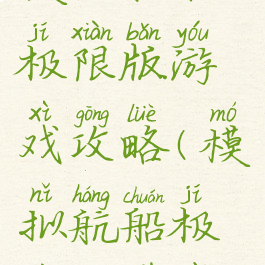 jí xiàn bǎn yóu
极限版游
xì gōng lüè mó
戏攻略(模
nǐ háng chuán jí
拟航船极